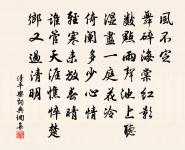 風不定
舞碎海棠紅影
數點雨聲池上聽
濕盡一庭花冷
倚闌多少心情
輕寒未放春晴
誰管天涯憔悴楚
鄉又過清明
清平樂